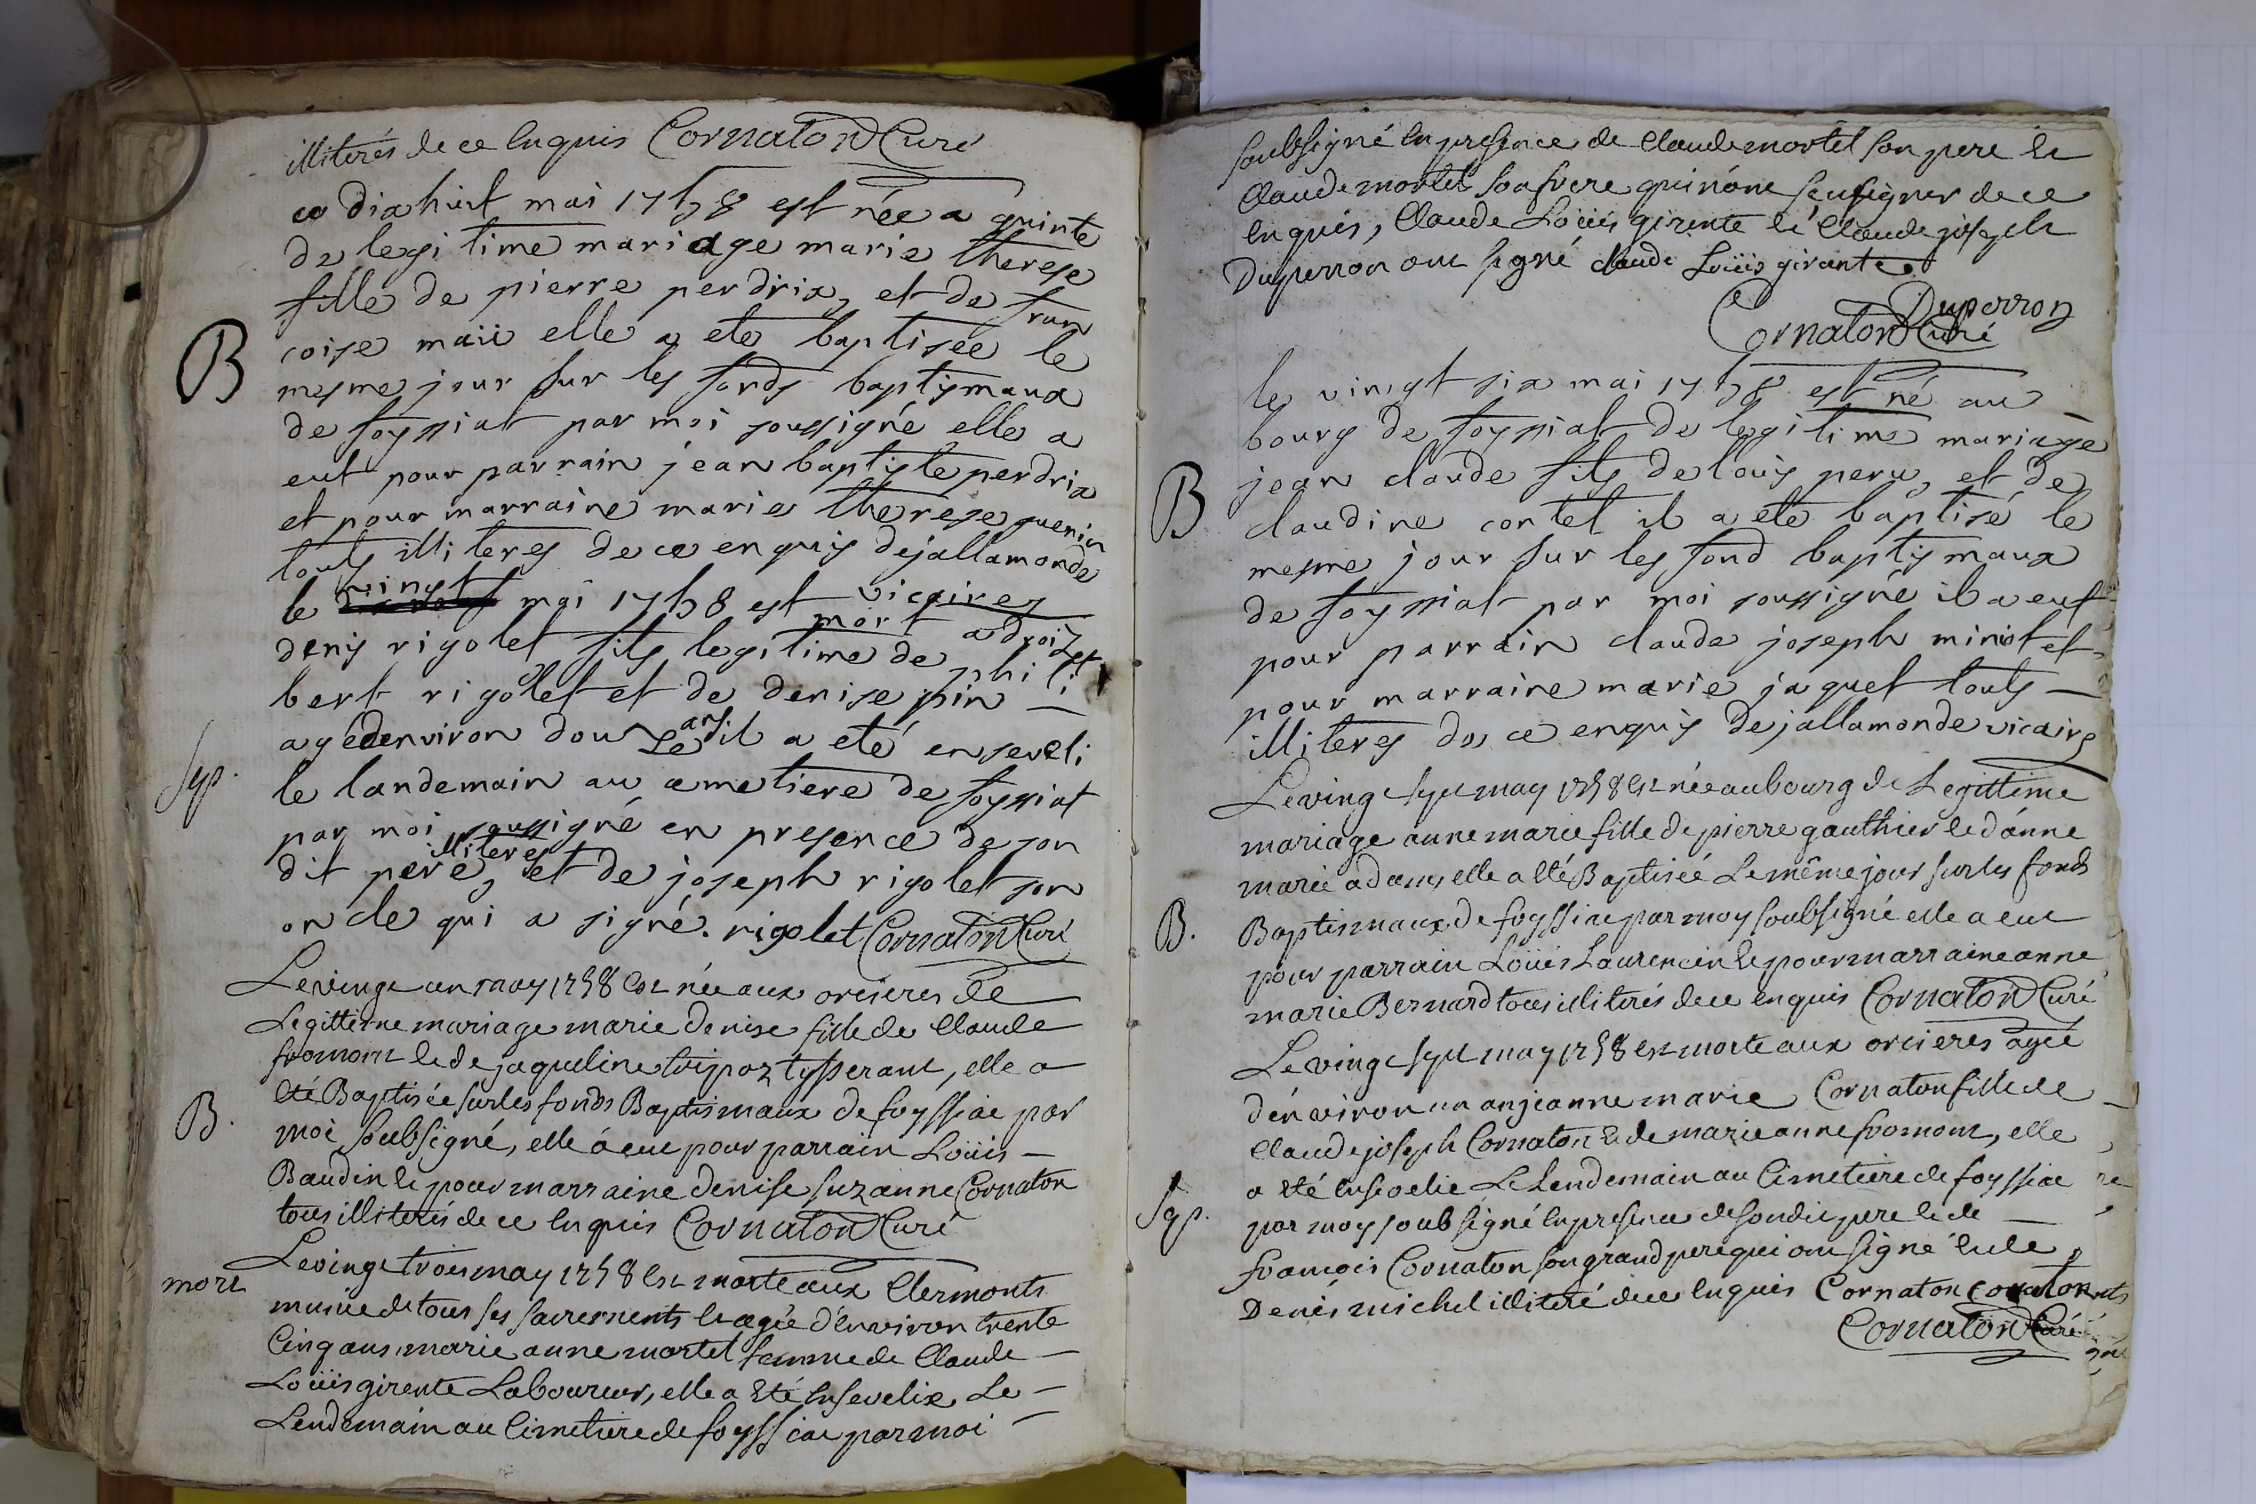 illiterés de ce Enquis Cornaton Curé
ce dix huit mai 1758 est née a quinte
de legitime mariage marie therese
fille de pierre perdrix, et de fran
coise maii elle a eté baptisée le
B
mesme jour sur les fonds baptismaux
de foyssiat par moi soussigné elle a
eut pour parrain jean baptiste perdrix
et pour marraine marie therese guenin
touts illiteres de ce enquis dejallamonde
vicaire
le vingt mai 1758 est mort a droizet
denis rigolet fils legitime de phili
bert rigolet et de denise pin —
agé denviron douze ans il a eté enseveli
Sep.
le landemain au cemetiere de foyssiat
par moi soussigné en presence de son
dit pere, illiteres et de joseph rigolet son
oncle qui a signé. rigolet Cornaton Curé
Le vingt un may 1758 Est née aux orcieres de
Legittime mariage marie denise fille de Claude
fromont Et de jaqueline tisserant, elle a
Eté Baptisée sur les fonds Baptismaux de foyssiat par
B.
moi soubsigné, elle a eut pour parrain Loüis —
Baudin Et pour marraine denise suzanne Cornaton
tous illiterés de ce Enquis Cornaton Curé
Le vingt trois may 1758 Est morte aux Clermonts
mort
munie de tous ses sacrements Et agée d'Environ trente
Cinq ans, marie anne mortel femme de Claude —
Loüis girente Laboureur, elle a Eté Ensevelie Le —
Lendemain au Cimetiere de foyssiat par moi —
soubsigné En presence de Claude mortel son pere Et
Claude mortel son frere qui n'ont sçu signer de ce
Enquis, Claude Loüis girente Et Claude joseph
Duperron ont signé claude Loüis girante
Duperron
Cornaton Curé
le vingt six mai 1758 est né au —
bourg de foyssiat de legitime mariage
jean claude fils de louis peru, et de
B
claudine cortel il a eté baptisé le
mesme jour sur les fond baptismaux
de foyssiat par moi soussigné il a eut
pour parrain claude joseph miniot et
pour marraine marie jaquet touts —
illiteres de ce enquis dejallamonde vicaire
Le vingt sept may 1758 Est née au bourg de Legittime
mariage anne marie fille de pierre gauthier Et d'anne
marie adam, elle a Eté Baptisée Le même jour sur les fonds
B.
Baptismaux de foyssiat par moy soubsigné elle a eut
pour parrain Loüis Laurencin Et pour marraine anne
marie Bernard tous illiterés de ce Enquis Cornaton Curé
Le vingt sept may 1758 Est morte aux orcieres agée
d'environ un an jeanne marie Cornaton fille de —
Claude joseph Cornaton Et de marie anne fromont, elle
a Eté Ensevelie Le Lendemain au Cimetiere de foyssiat
Sep.
par moy soubsigné En presence de son dit pere Et de —
françois Cornaton son grand pere qui ont signé Et de
Denis michel illiteré de ce Enquis Cornaton cornaton
Cornaton Curé